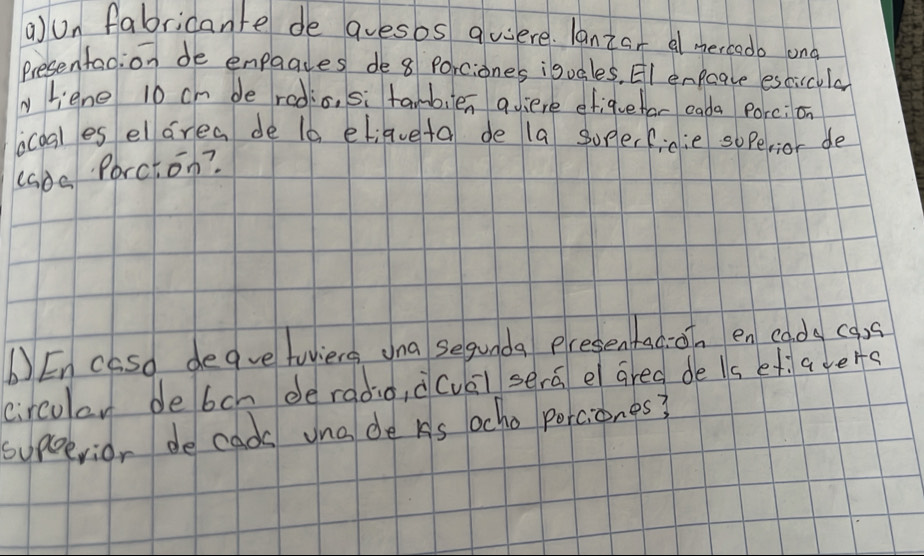 a) Un fabricante de quesos quiere lanzar al mercado una
Presentación de empaques de 8 Porciones iguales. El enpaque escircular
y tiene 10 cm de radio, si también quiere etiquetar cada Porción
¿cual es el área de la etiqueta de la superficie superior de
cada Porción?
b) En caso de que tuviera una segunda presentación en cada caja
circular de 6cm de radio, ¿Cuál será el área de la etiqueta
superior de cada una de las ocho porciones?